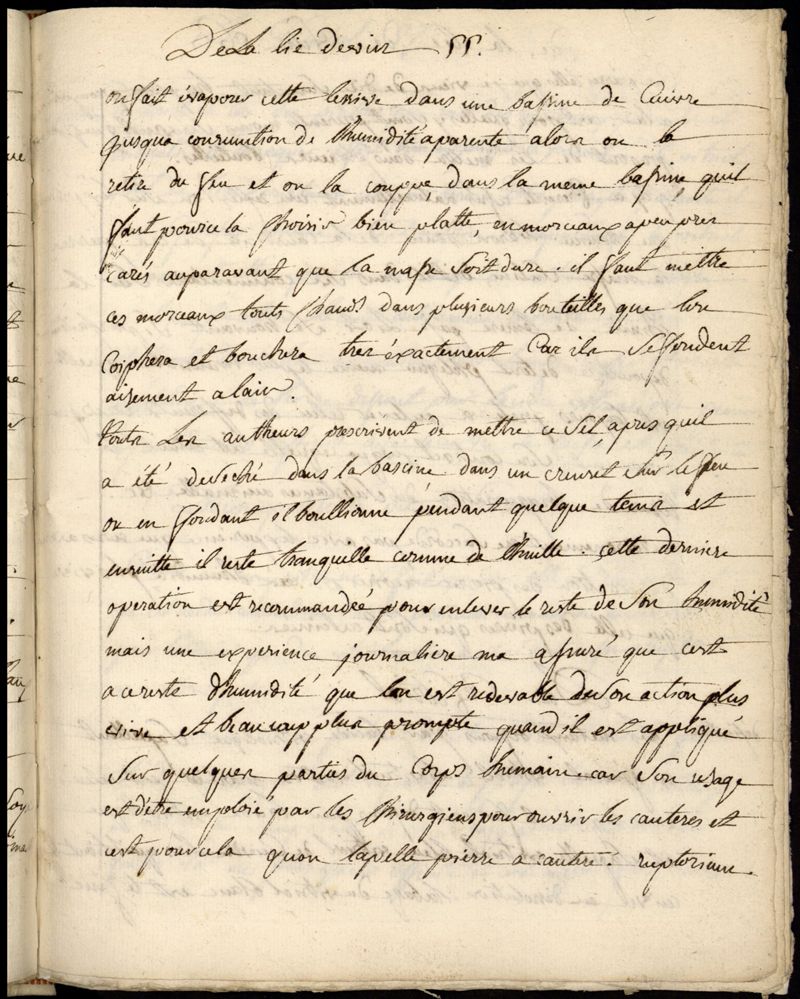 De La lie de vin 55.
on fait évaporer cette lessive dans une bassine de Cuivre
jusqua consumition de lhumidité aparente alors on la
retire du feu et on la couppe dans la meme bassine quil
faut pour cela choisir bien platte, en morceaux apeu pres
carés auparavant que la masse soit dure. il faut mettre
ces morceaux touts chauds dans plusieurs bouteilles que lon
coiphera et bouchera tres éxactement Car ils se fondent
aisement a lair.
touts Les autheurs prescrivent de mettre ce sel, apres quil
a été deseché dans la bascine dans un creuset sur le feu
ou en fondant il boullionne pendant quelque tems et
ensuitte il reste tranquille comme de lhuille. cette derniere
operation est recommandeé pour enlever le reste de son humidité
mais une experience journaliere ma assuré que cest
a ce reste dhumidité que lon est redevable de son action plus
vive et beaucoup plus prompte quand il est appliqué
sur quelques parties du Corps humain. car son usage
est detre emploié par les chirurgiens pour ouvrir les cauteres et
cest pour cela quon lapelle pierre a cautere. ruptoriume.